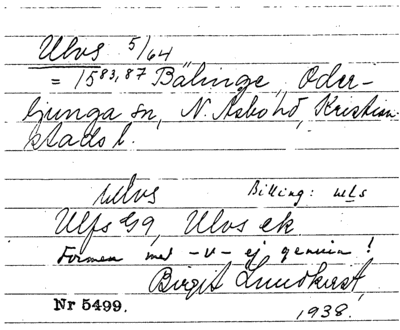 Ulvs 5/64
= 1583,87 Bälinge, Oder-
ljunga sn, N. Åsbo hd, Kristian-
stads l.
ulvs Billing: uls
Ulfs 69, Ulvs ek
Formen med -v- ej genuin!
Birgit Lundkvist,
Nr 5499. 1938.